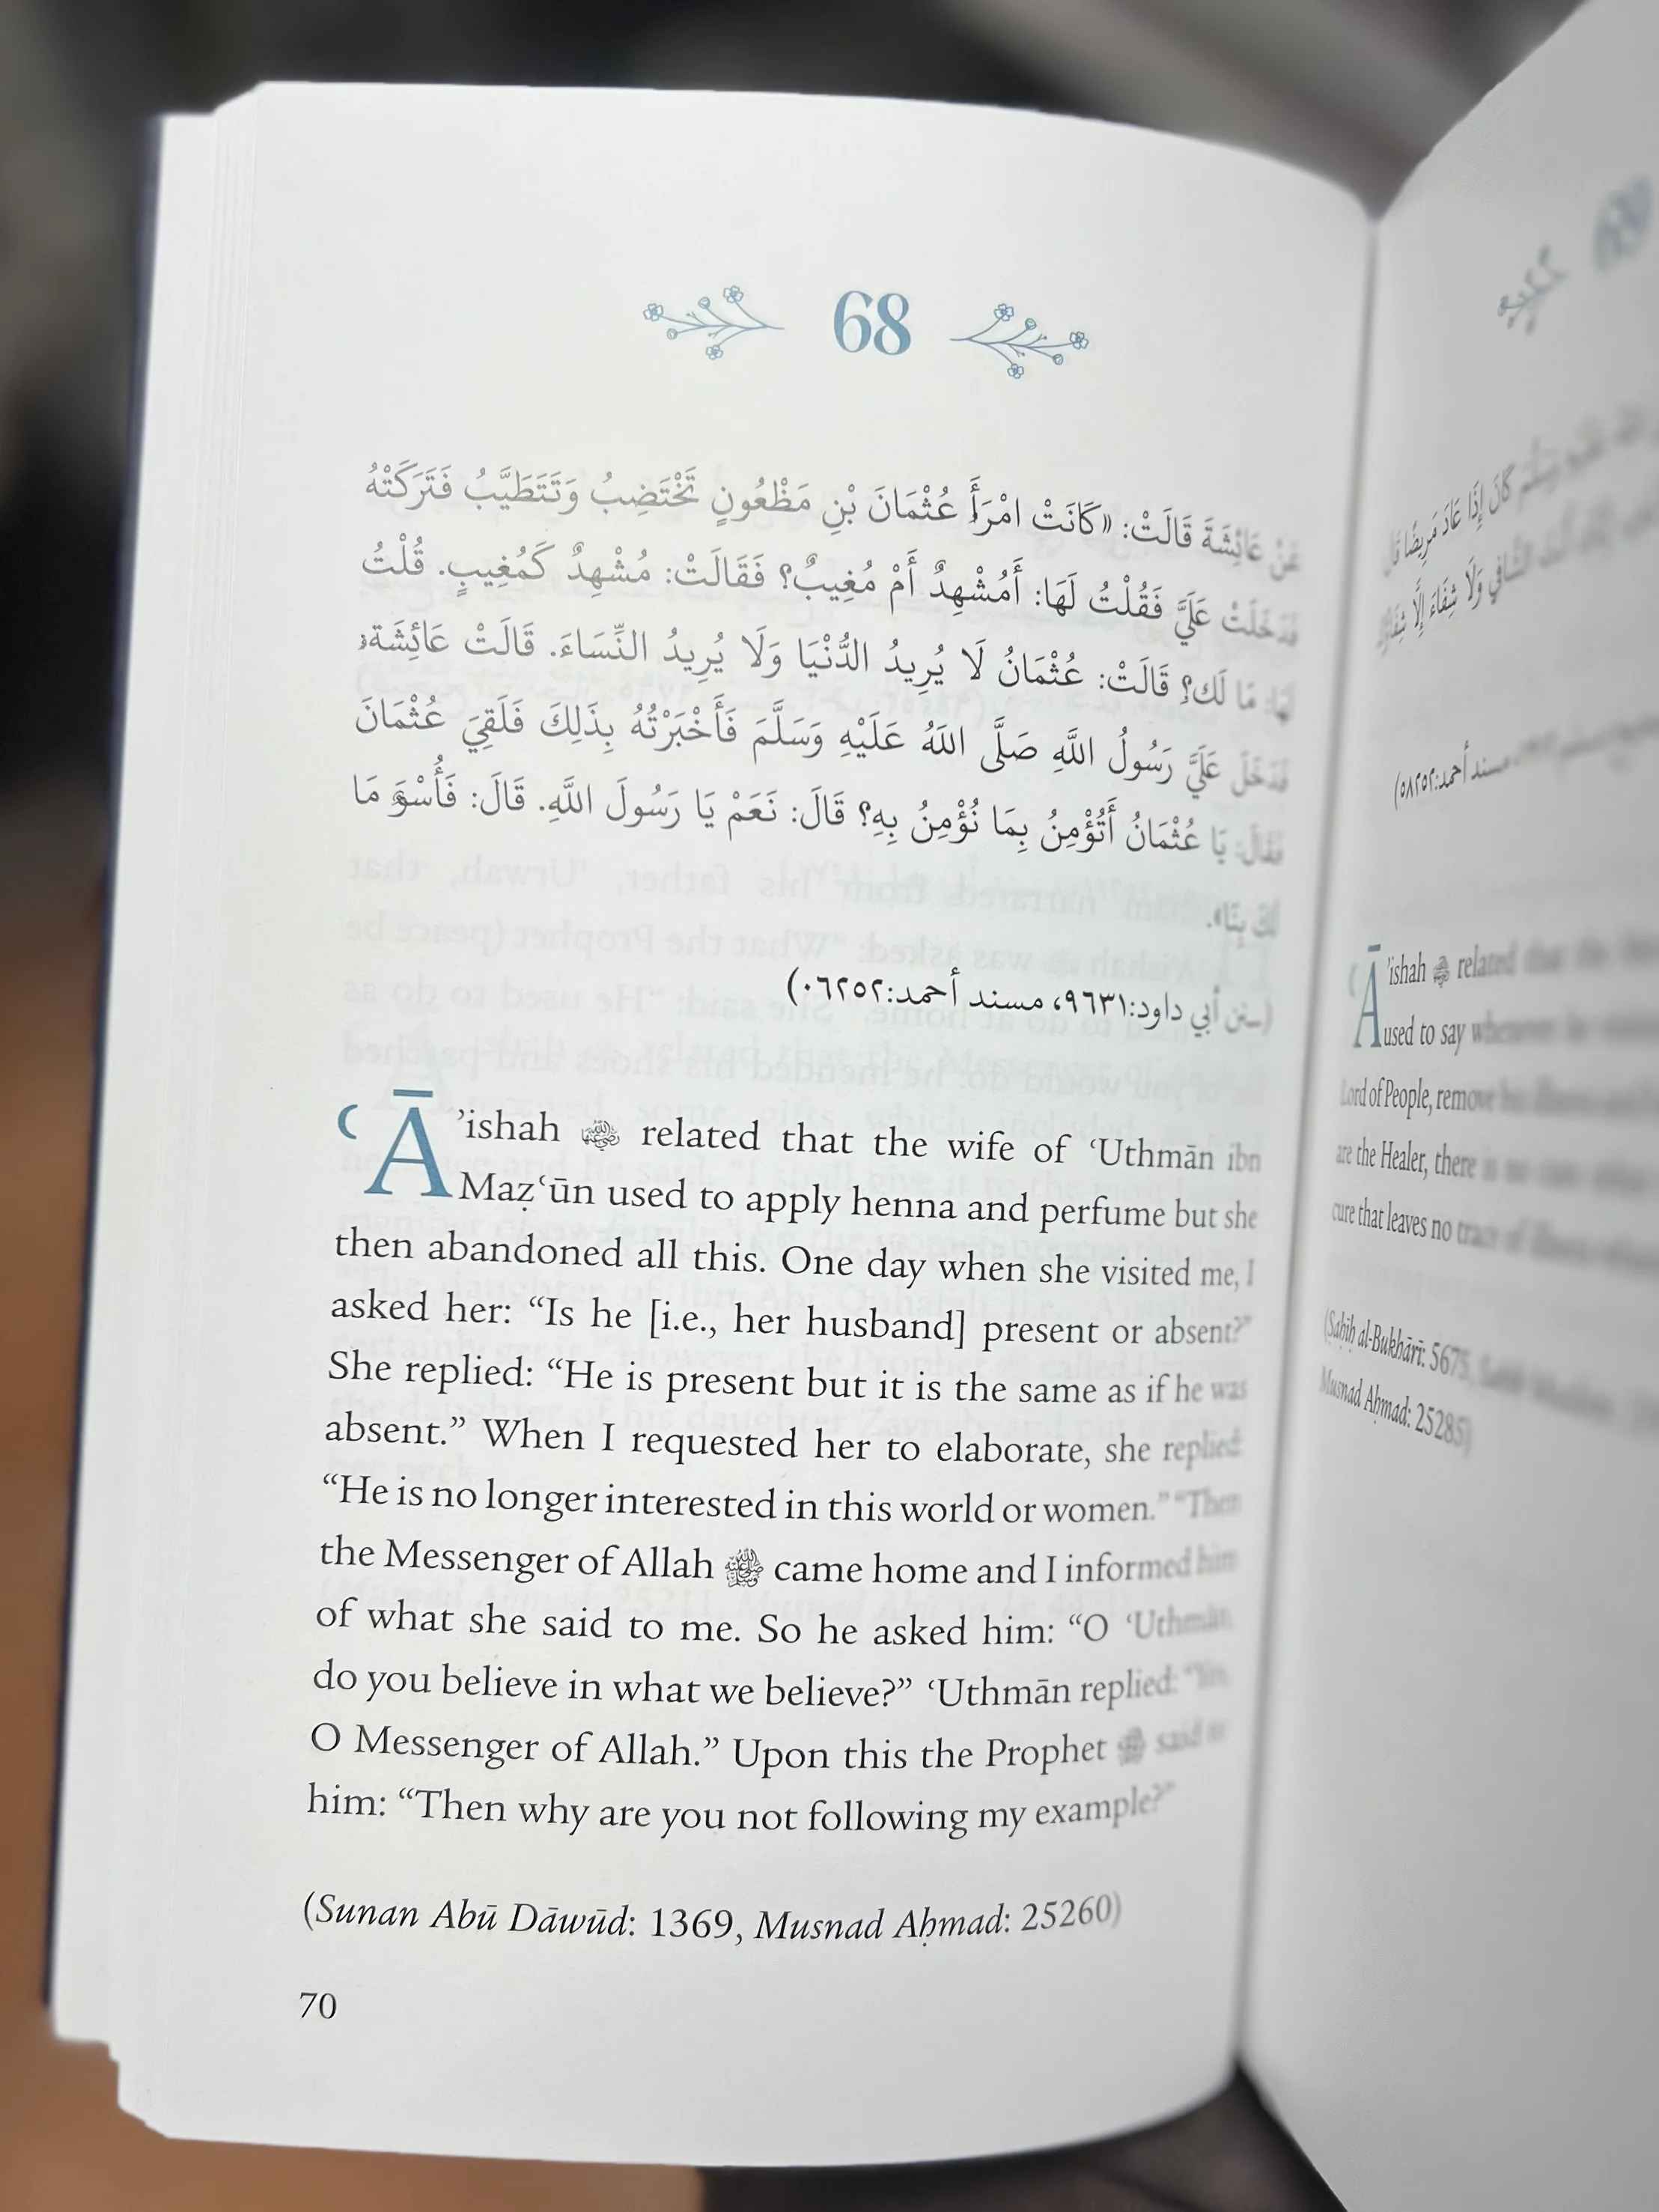 68
عَنْ عَائِشَةَ قَالَتْ: «كَانَتْ امْرَأَ عُثْمَانَ بْنِ مَظْعُونٍ تَخْتَضِبُ وَتَتَطَيَّبُ فَتَرَكَتْهُ
فَدَخَلَتْ عَلَيَّ فَقُلْتُ لَهَا: أَمُشْهِدٌ أَمْ مُغِيبٌ؟ فَقَالَتْ: مُشْهِدٌ كَمُغِيبٍ. قُلْتُ
لَهَا: مَا لَكِ؟ قَالَتْ: عُثْمَانُ لَا يُرِيدُ الدُّنْيَا وَلَا يُرِيدُ النِّسَاءَ. قَالَتْ عَائِشَةُ:
فَدَخَلَ عَلَيَّ رَسُولُ اللَّهِ صَلَّى اللهُ عَلَيْهِ وَسَلَّمَ فَأَخْبَرْتُهُ بِذَلِكَ فَلَقِيَ عُثْمَانَ
فَقَالَ: يَا عُثْمَانُ أَتُؤْمِنُ بِمَا نُؤْمِنُ بِهِ؟ قَالَ: نَعَمْ يَا رَسُولَ اللَّهِ. قَالَ: فَأُسْوَةٌ مَا
لَكَ بِنَا».
(سنن أبي داود:٩٦٣١، مسند أحمد:٠٦٢٥٢)
ʿĀ’ishah related that the wife of ʿUthmān ibn
Maẓʿūn used to apply henna and perfume but she
then abandoned all this. One day when she visited me, I
asked her: “Is he [i.e., her husband] present or absent?”
She replied: “He is present but it is the same as if he was
absent.” When I requested her to elaborate, she replied
“He is no longer interested in this world or women.” “Then
the Messenger of Allah ﷺ came home and I informed him
of what she said to me. So he asked him: “O ʿUthmān,
do you believe in what we believe?” ʿUthmān replied: “Yes,
O Messenger of Allah.” Upon this the Prophet ﷺ said to
him: “Then why are you not following my example?”
(Sunan Abū Dāwūd: 1369, Musnad Aḥmad: 25260)
70
كَانَ إِذَا عَادَ مَرِيضًا قَالَ
الشَّافِي وَلَا شِفَاءَ إِلَّا
مسند أحمد:٥٨٢٥٢)
ʿĀ’ishah related that the
used to say whenever he
Lord of People, remove
are the Healer, there is no
cure that leaves no trace of illness
(Ṣaḥīḥ al-Bukhārī: 5675,
Musnad Aḥmad: 25285)